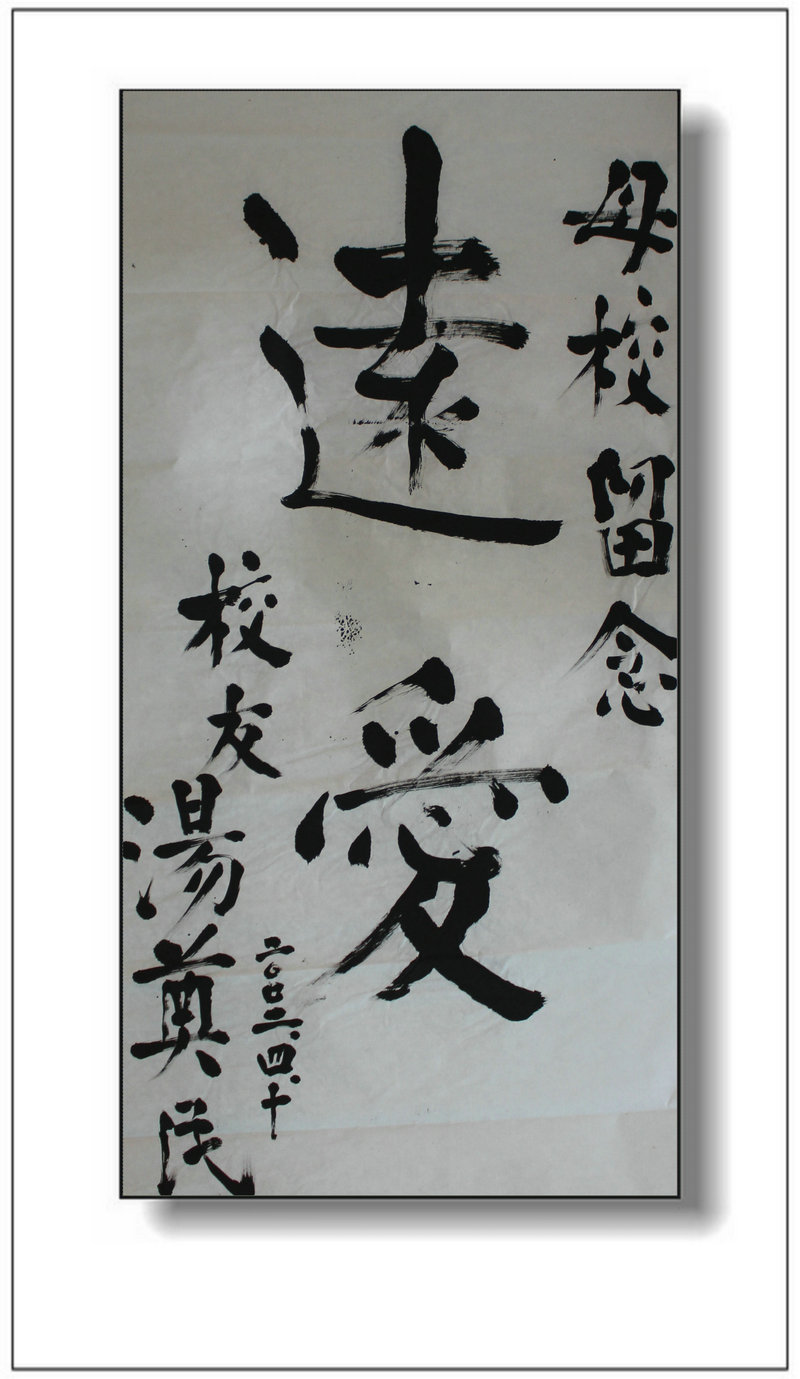 母校留念
遠愛
校友湯奠民
二〇〇二.四.十